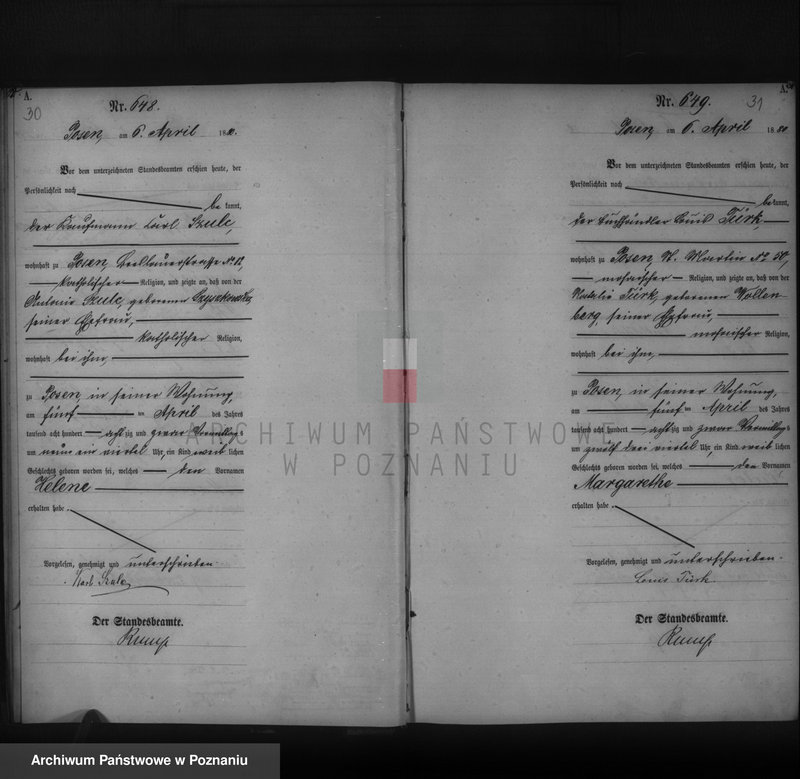 A.
30
Nr. 648.
Posen, am 6. April 1880.
Vor dem unterzeichneten Standesbeamten erschien heute, der
Persönlichkeit nach
bekannt,
der Kaufmann Carl Szulc,
wohnhaft zu Posen, Breslauerstrasse No 12,
katholischer Religion, und zeigte an, daß von der
Antonie Szulc, geborenen Czyszkowska,
seiner Ehefrau,
katholischer Religion,
wohnhaft bei ihm,
zu Posen, in seiner Wohnung,
am fünf ten April des Jahres
tausend acht hundert achtzig und zwar Vormittags
um neun ein viertel Uhr, ein Kind weiblichen
Geschlechts geboren worden sei, welches den Vornamen
Helene
erhalten habe.
Vorgelesen, genehmigt und unterschrieben.
Karl Szulc
Der Standesbeamte.
Rump
A.
31
Nr. 649.
Posen, am 6. April 1880
Vor dem unterzeichneten Standesbeamten erschien heute, der
Persönlichkeit nach
bekannt,
der Buchhändler Louis Türk,
wohnhaft zu Posen, St. Martin No 50,
mosaischer Religion, und zeigte an, daß von der
Natalie Türk, geborenen Wollen
berg, seiner Ehefrau,
mosaischer Religion,
wohnhaft bei ihm,
zu Posen, in seiner Wohnung,
am fünf ten April des Jahres
tausend acht hundert achtzig und zwar Vormittags
um zwölf drei viertel Uhr, ein Kind weiblichen
Geschlechts geboren worden sei, welches den Vornamen
Margarethe
erhalten habe.
Vorgelesen, genehmigt und unterschrieben.
Louis Türk.
Der Standesbeamte.
Rump
ARCHIWUM PAŃSTWOWE
W POZNANIU
Archiwum Państwowe w Poznaniu